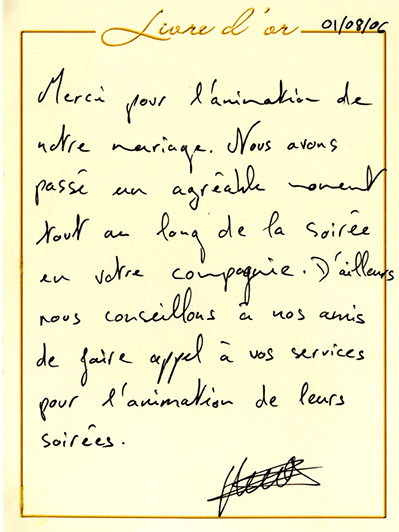 Livre d'or
01/08/06
Merci pour l'animation de
notre mariage. Nous avons
passé un agréable moment
tout au long de la soirée
en votre compagnie. D'ailleurs
nous conseillons à nos amis
de faire appel à vos services
pour l'animation de leurs
soirées.